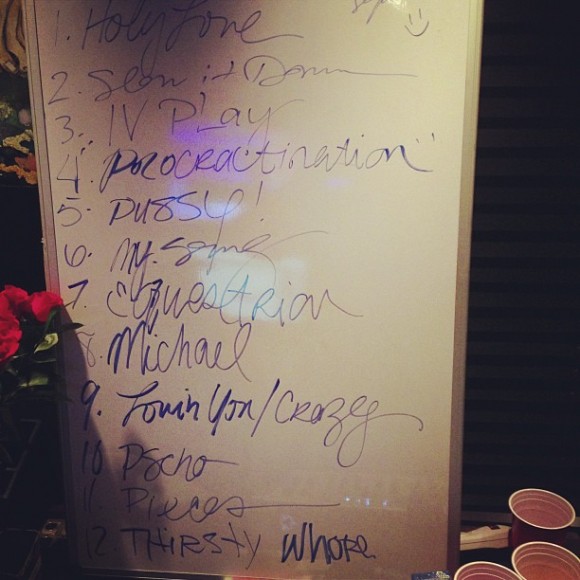 1. Holy Love
2. Slow it Down
3. IV PLAY
4. "Procractination"
5. PUSSY!
6. My Song
7. EQuestrian
8. Michael
9. Lovin You/CRAZEY
10 PScho
11. PieceS
12. THIRSty Whore